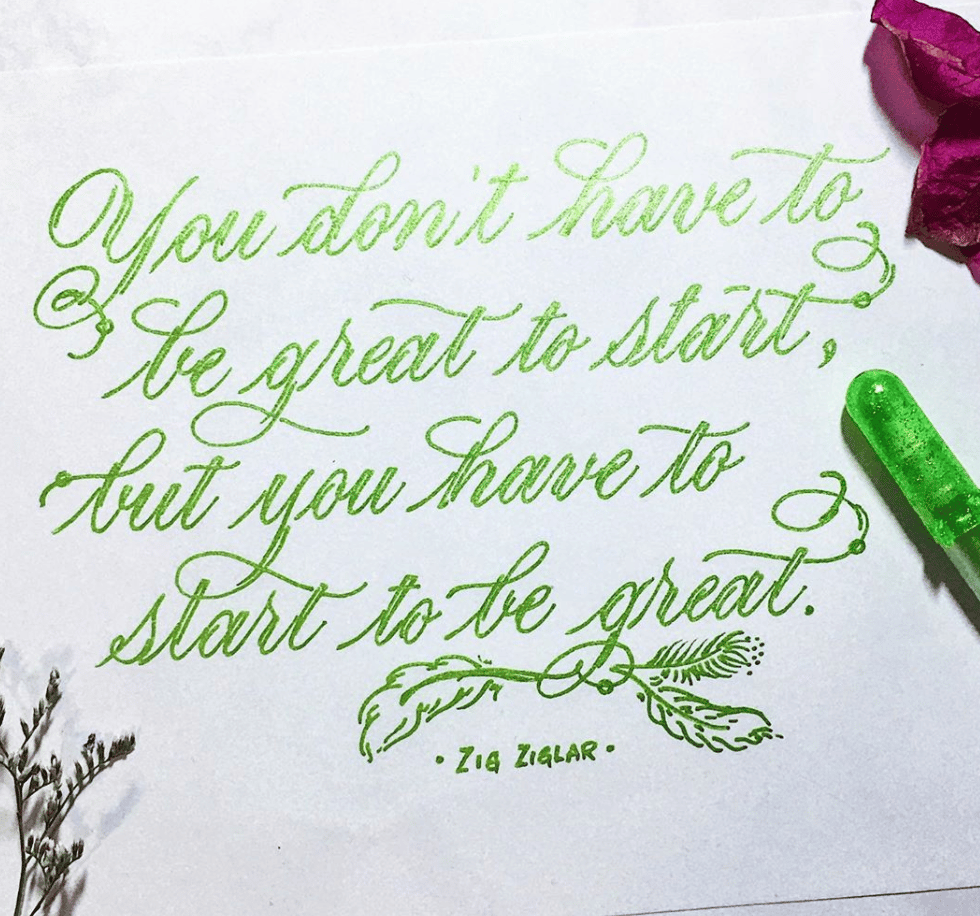 You don't have to
be great to start,
but you have to
start to be great.
• ZIG ZIGLAR •